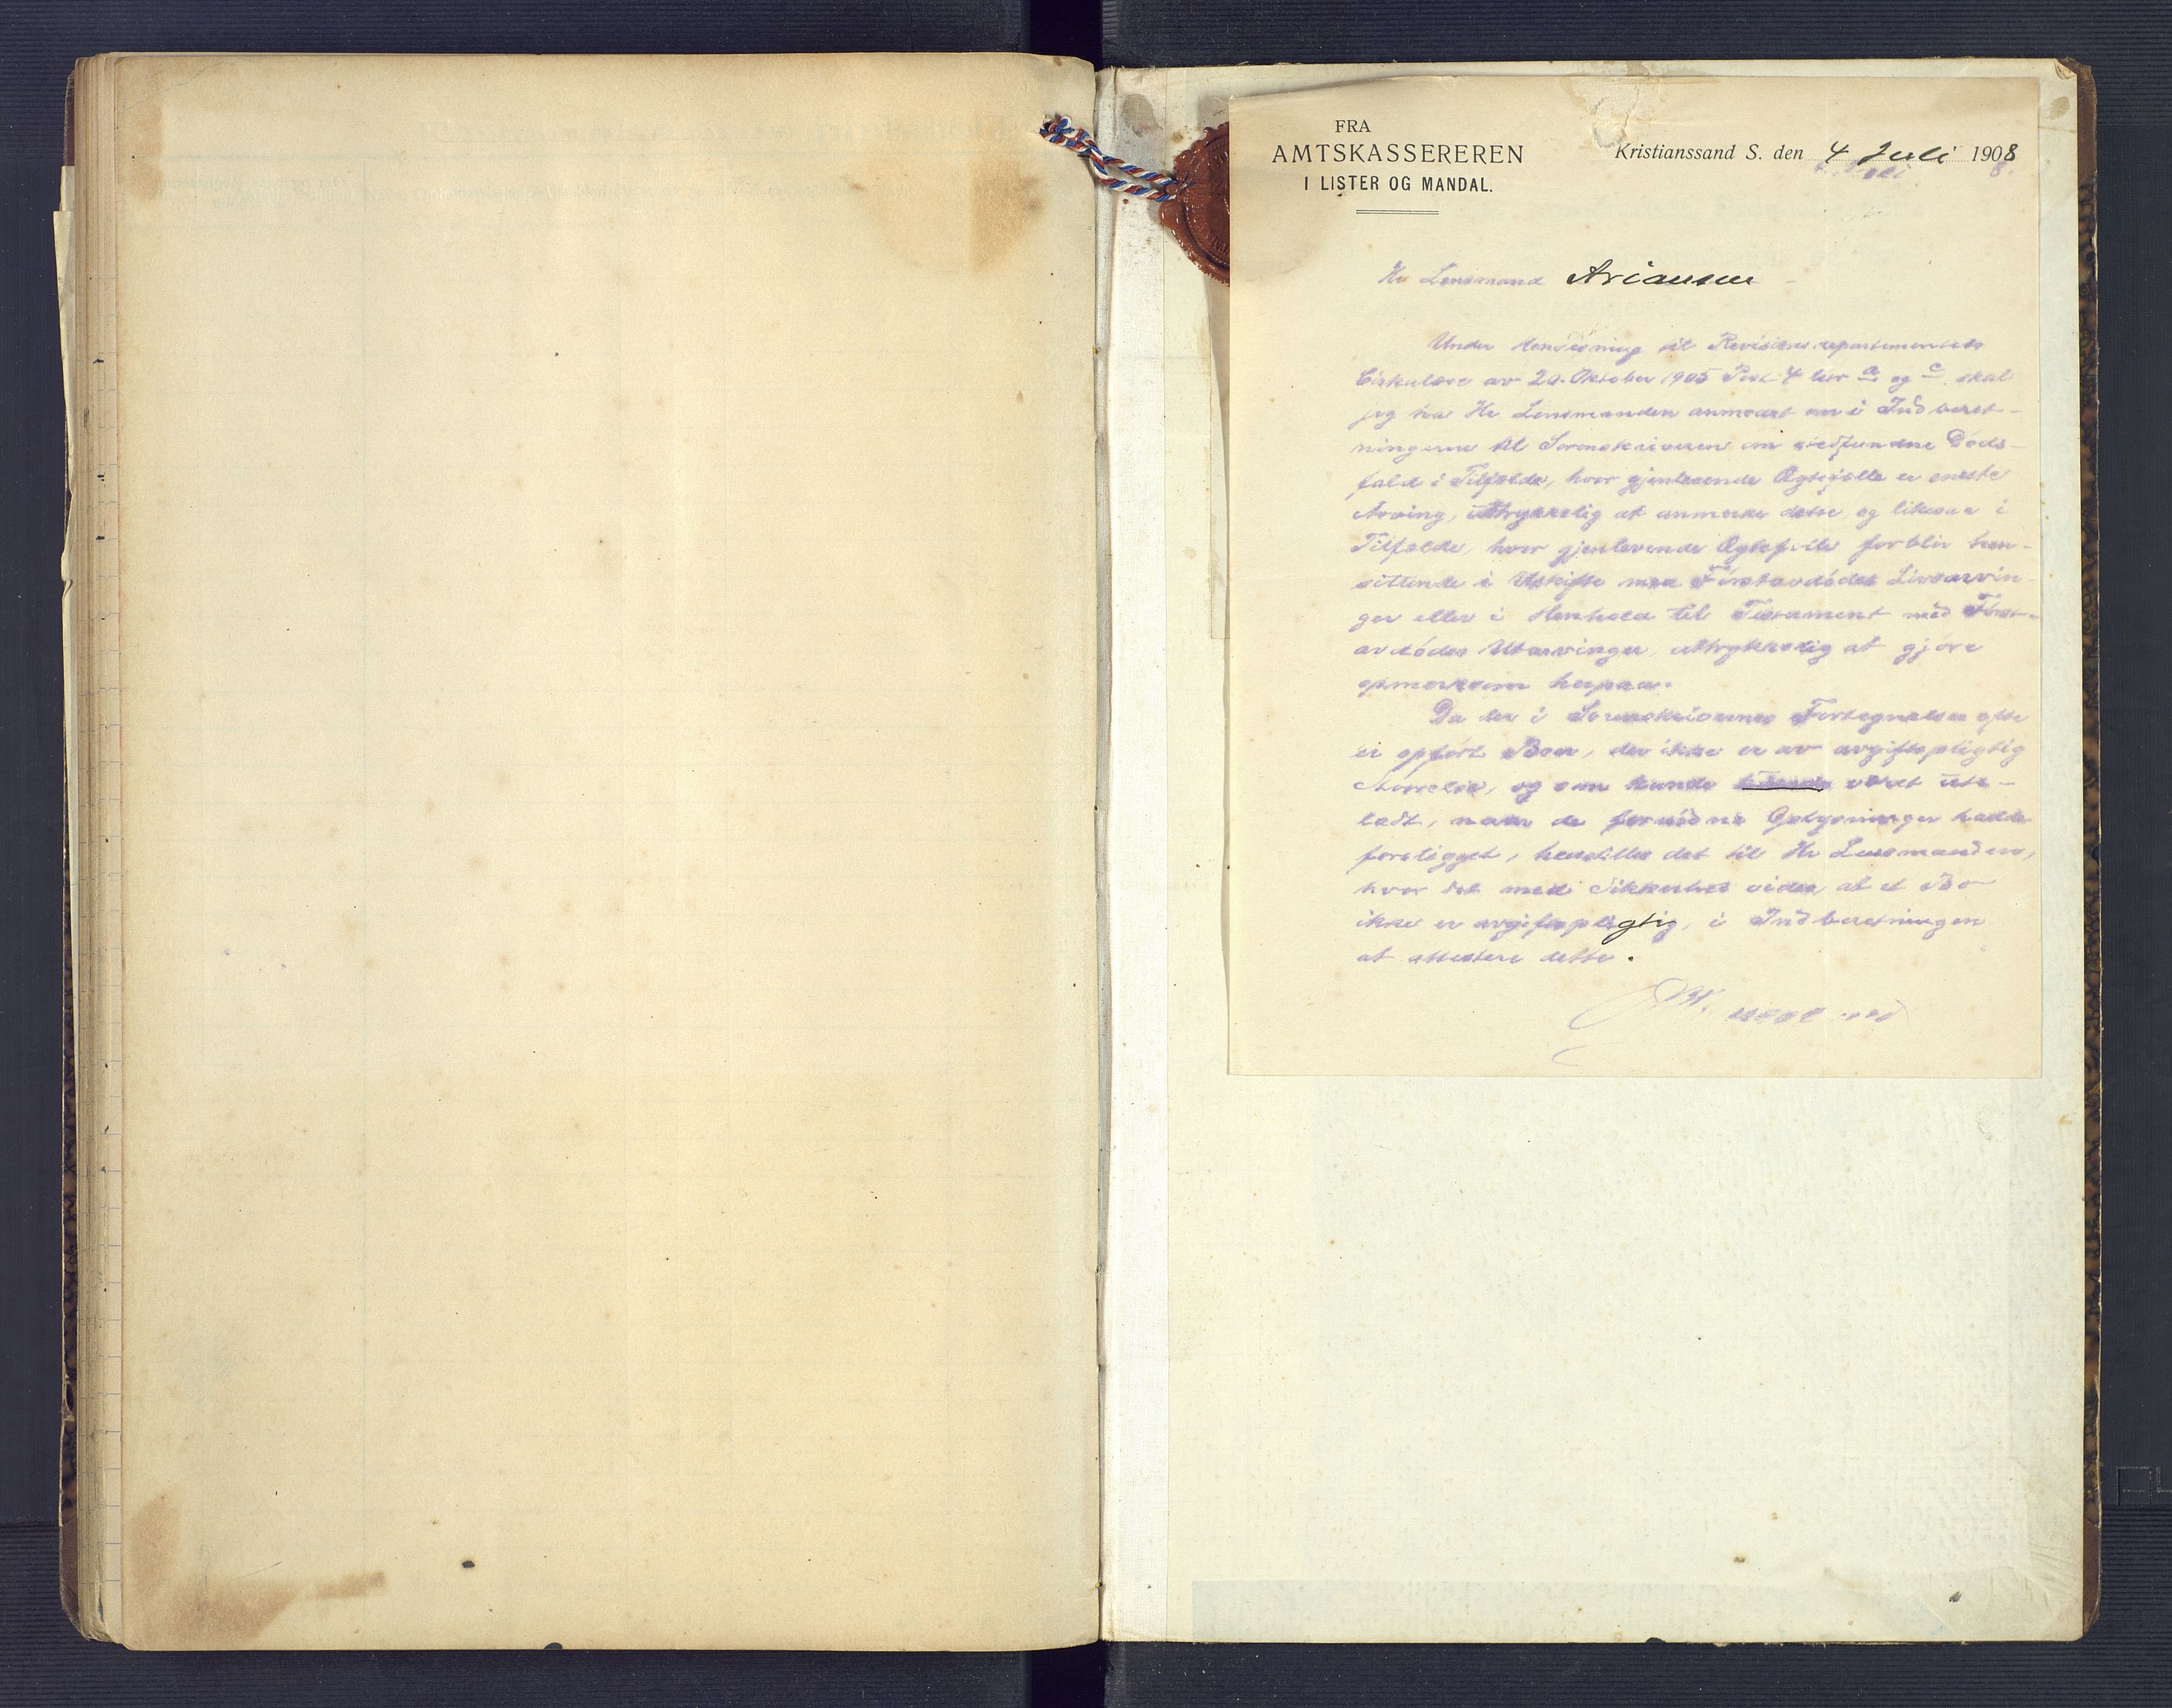 FRA
AMTSKASSEREREN
I LISTER OG MANDAL.
Kristianssand S. den 4 Juli 1908
Hr Lensmand Ariansen
Under Henvisning til Revisionsdepartementets
Cirkulære av 20. Oktober 1905 Post 4 litr a og c skal
jeg ha Hr Lensmanden anmodet om i Indberet-
ningerne til Sorenskriveren om stedfundne Døds-
fald i Tilfælde, hvor gjenlevende Ægtefælle er eneste
Arving, uttrykkelig at anmerke dette og likesaa i
Tilfælde, hvor gjenlevende Ægtefælle forblir hen-
sittende i Uskifte med Førstavdødes Livsarvin-
ger eller i Henhold til Testament med Først-
avdødes Utarvinger, uttrykkelig at gjøre
opmerksom herpaa.
Da der i Sorenskrivernes Fortegnelser ofte
er opført Boer, der ikke er av avgiftspligtig
Størrelse, og som kunde været ute-
ladt, naar de fornødne Oplysninger hadde
foreligget, henstilles det til Hr Lensmanden,
hvor det med Sikkerhet vides, at et Bo
ikke er avgiftspligtig, i Indberetningen
at attestere dette.